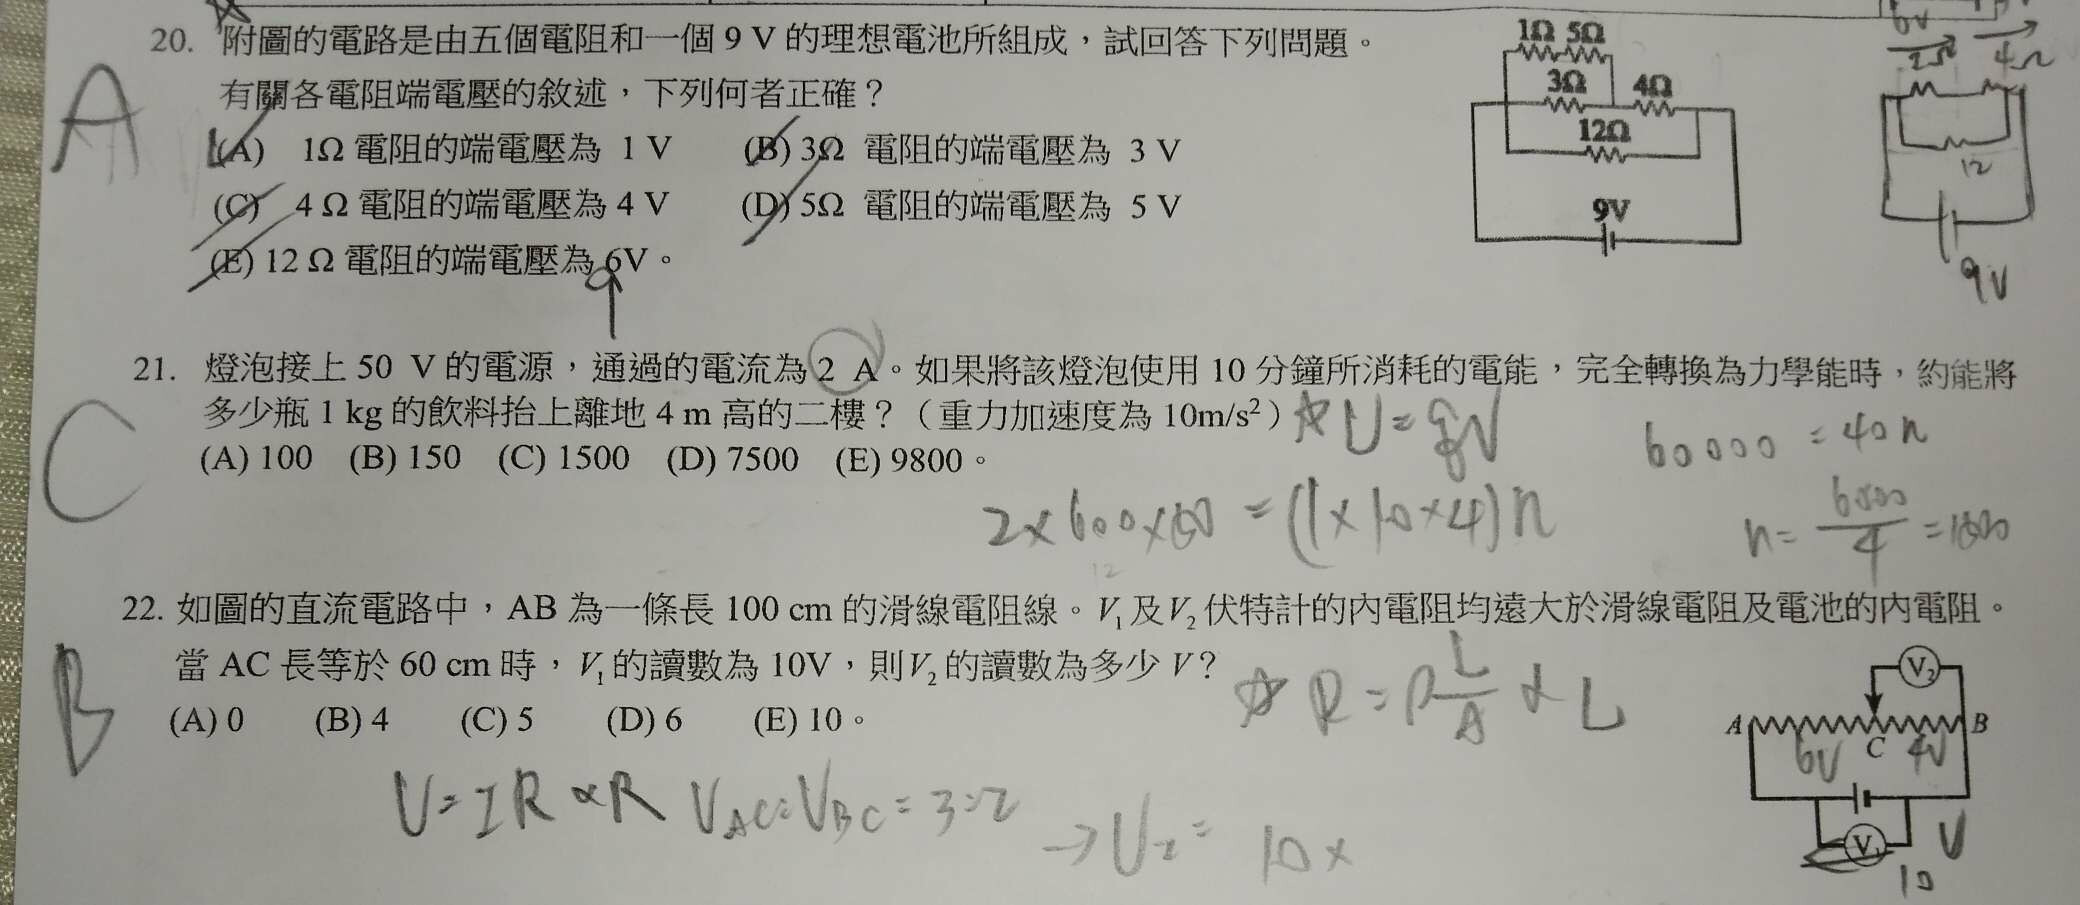 20. 附圖的電路是由五個電阻和一個 9 V 的理想電池所組成，試回答下列問題。
有關各電阻端電壓的敘述，下列何者正確？
A
(A) 1Ω 電阻的端電壓為 1 V (B) 3Ω 電阻的端電壓為 3 V
(C) 4 Ω 電阻的端電壓為 4 V (D) 5Ω 電阻的端電壓為 5 V
(E) 12 Ω 電阻的端電壓為 6V。
9
1Ω 5Ω
3Ω 4Ω
12Ω
9V
6V
2Ω 4Ω
12
9V
21. 燈泡接上 50 V 的電源，通過的電流為 2 A。如果將該燈泡使用 10 分鐘所消耗的電能，完全轉換為力學能時，約能將
多少瓶 1 kg 的飲料抬上離地 4 m 高的二樓？（重力加速度為 10m/s²）
C
(A) 100 (B) 150 (C) 1500 (D) 7500 (E) 9800。
U=qV
60000 = 40n
2×600×50 = (1×10×4)n
n= 6000/4 =1500
22. 如圖的直流電路中，AB 為一條長 100 cm 的滑線電阻線。V₁及V₂伏特計的內電阻均遠大於滑線電阻及電池的內電阻。
當 AC 長等於 60 cm 時，V₁的讀數為 10V，則V₂的讀數為多少 V？
B
(A) 0 (B) 4 (C) 5 (D) 6 (E) 10。
R = ρ L/A ∝ L
V=IR ∝R VAC:VBC=3:2
→V₂= 10×
V₂
A C B
6V 4V
V₁ V
10